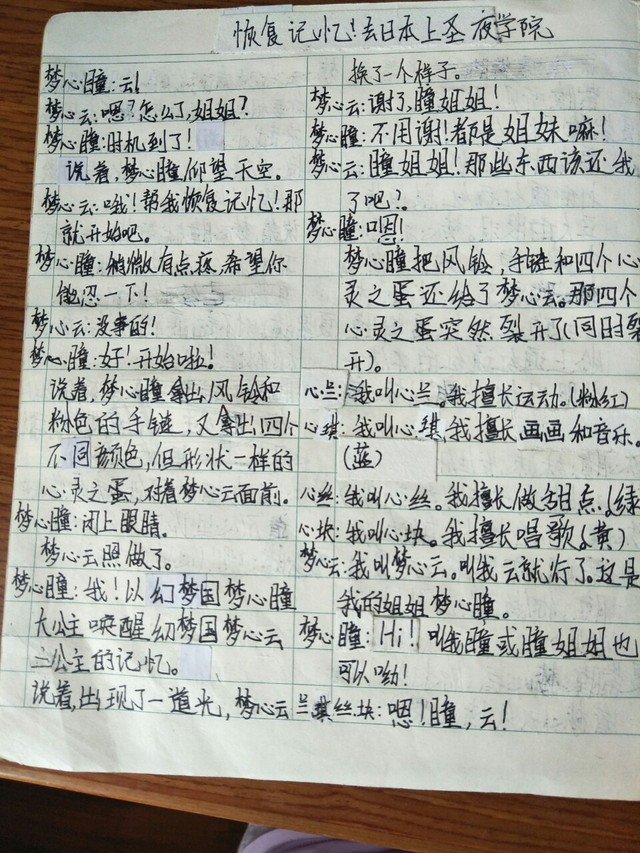 恢复记忆!去日本上圣夜学院
梦心瞳:云!
梦心云:嗯?怎么了,姐姐?
梦心瞳:时机到了!
说着,梦心瞳仰望天空。
梦心云:哦!帮我恢复记忆!那
就开始吧。
梦心瞳:微微有点疼,希望你
做忍一下!
梦心云:没事的!
梦心瞳:好!开始啦!
说着,梦心瞳拿出风铃和
粉色的手链,又拿出四个
不同颜色,但形状一样的
心灵之蛋,对着梦心云面前。
梦心瞳:闭上眼睛。
梦心云照做了。
梦心瞳:我!以幻梦国梦心瞳
大公主唤醒幻梦国梦心云
二公主的记忆。
说着,出现了一道光,梦心云
换了一个样子。
梦心云:谢了,瞳姐姐!
梦心瞳:不用谢!都是姐妹嘛!
梦心云:瞳姐姐!那些东西该还我
了吧?
梦心瞳:嗯!
梦心瞳把风铃,手链和四个心
灵之蛋还给了梦心云。那四个
心灵之蛋突然裂开了(同时裂
开)。
心兰:我叫心兰,我擅长运动。(粉红)
心琪:我叫心琪,我擅长画画和音乐。
(蓝)
心丝:我叫心丝。我擅长做甜点。(绿
心块:我叫心块。我擅长唱歌。(黄)
梦心云:我叫梦心云。叫我云就行了。这是
我的姐姐梦心瞳。
梦心瞳:Hi!叫我瞳或瞳姐姐也
可以呦!
兰琪丝块:嗯!瞳,云!